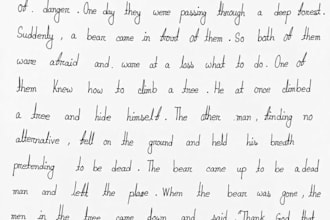 of. danger. One day they were passing through a deep forest.
Suddenly, a bear came in front of them. So both of them
ware afraid and. ware at a loss what to do. One of
them Know how to climb a tree. He at once climbed
a tree and hide himself. The other man, finding no
alternative, fell on the ground and held his breath
pretending to be dead. The bear came up to be a dead
man and left the plase. When the bear was gone, the
men in the tree came down and said "Thank God that